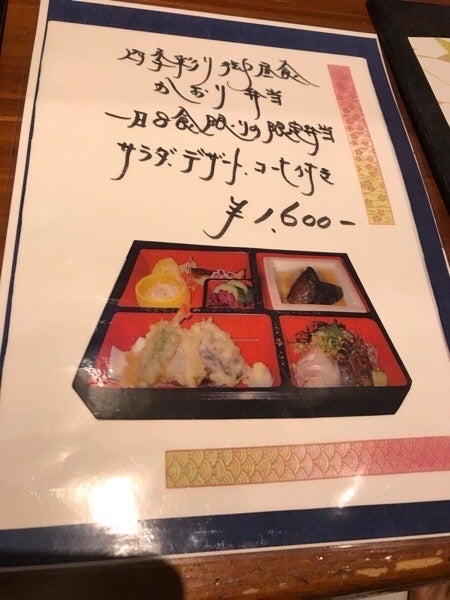 四季彩り御昼食
かおり弁当
一日8食限りの限定弁当
サラダ、デザート、コーヒー付き
¥1,600-